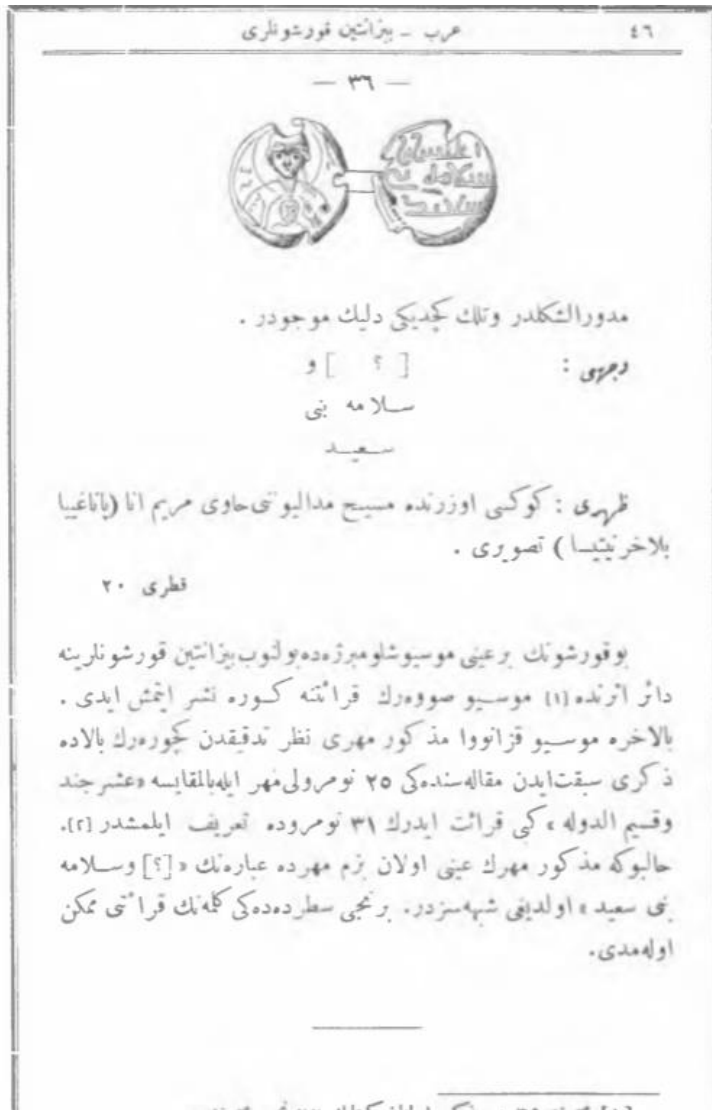 ٤٦ عرب ـ بيزانتين قورشونلرى
— ٣٦ —
مدورالشكلدر وتلك كچديكى دليك موجودر .
وجهى : [ ؟ ] و
سـلامه بنى
سـعيـد
ظهرى : كوكسى اوزرنده مسيح مداليونى حاوى مريم انا (باناغييا
بلاخرنيتيسا ) تصويرى .
قطرى ٢٠
بوقورشونك برعينى موسيوشلومبرژه‌ده بولنوب بيزانتين قورشونلرينه
دائر اثرنده [١] موسـيو صووه‌رك قرائتنه كـوره نشر ايتمش ايدى .
بالاخره موسـيو قزانووا مذكور مهرى نظر تدقيقدن كچوره‌رك بالاده
ذكرى سبقت‌ايدن مقاله‌سنده‌كى ٢٥ نومرولى‌مهر ايله‌بالمقايسه «عشرجند
وقسيم الدوله » كى قرائت ايدرك ٣١ نومروده تعريف ايلمشدر [٢].
حالبوكه مذكور مهرك عينى اولان بزم مهرده عباره‌نك « [؟] وسـلامه
بنى سعيد » اولديغى شبهه‌سزدر. برنجى سطرده‌كى كله‌نك قرائتى ممكن
اوله‌مدى.